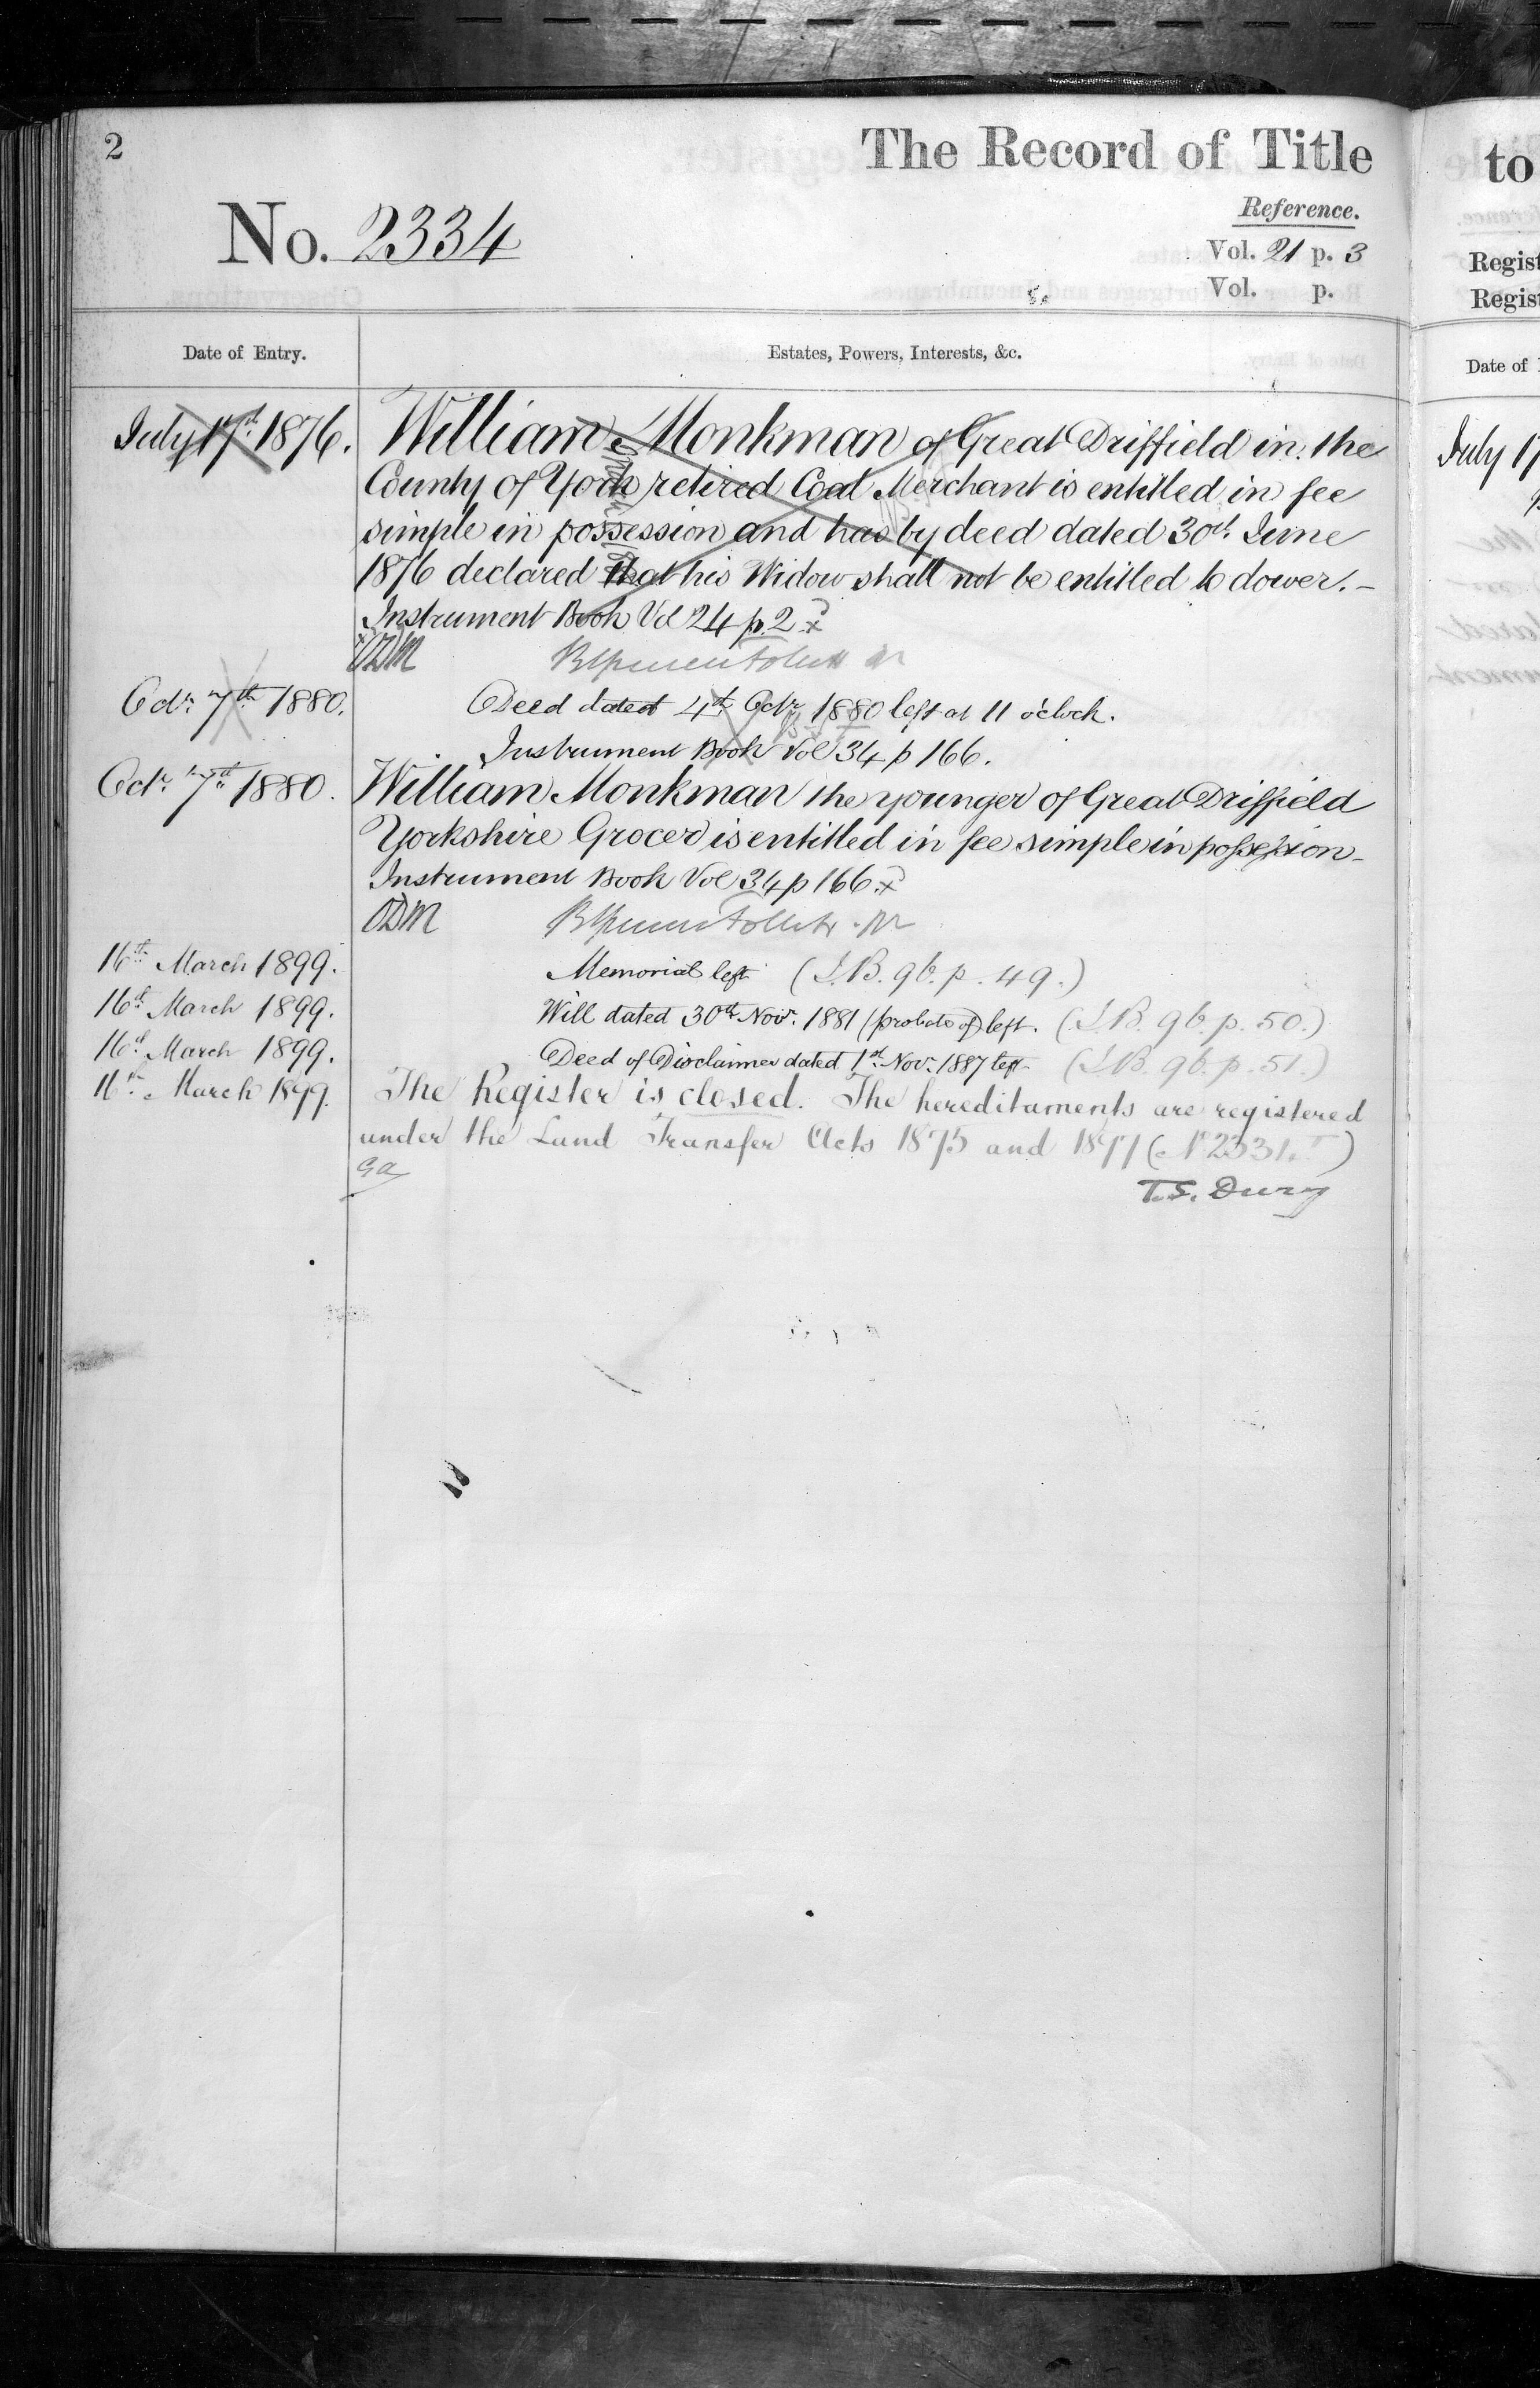 2
The Record of Title
No. 2334
Reference.
Vol. 21 p. 3
Vol. p.
Date of Entry.
Estates, Powers, Interests, &c.
July 17th 1876.
William Monkman of Great Driffield in the
County of York retired Coal Merchant is entitled in fee
simple in possession and has by deed dated 30th June
1876 declared that his Widow shall not be entitled to dower. -
Instrument Book Vol 24 p. 2
ODM
Octr. 7th 1880.
Deed dated 4th Octr. 1880 left at 11 o'clock.
Instrument Book Vol 34 p 166.
Octr. 7th 1880.
William Monkman the younger of Great Driffield
Yorkshire Grocer is entitled in fee simple in possession -
Instrument Book Vol 34 p 166.
ODM
16th March 1899.
Memorial left (I.B. 96. p. 49.)
16th March 1899.
Will dated 30th Novr. 1881 (probate of) left. (I.B. 96. p. 50.)
16th March 1899.
Deed of Disclaimer dated 1st Novr. 1887 left. (I.B. 96. p. 51.)
16th March 1899.
The Register is closed. The hereditaments are registered
under the Land Transfer Acts 1875 and 1897 (No 2331.)
GA
T.S. Dury
to
Regist
Regist
Date of
July 17